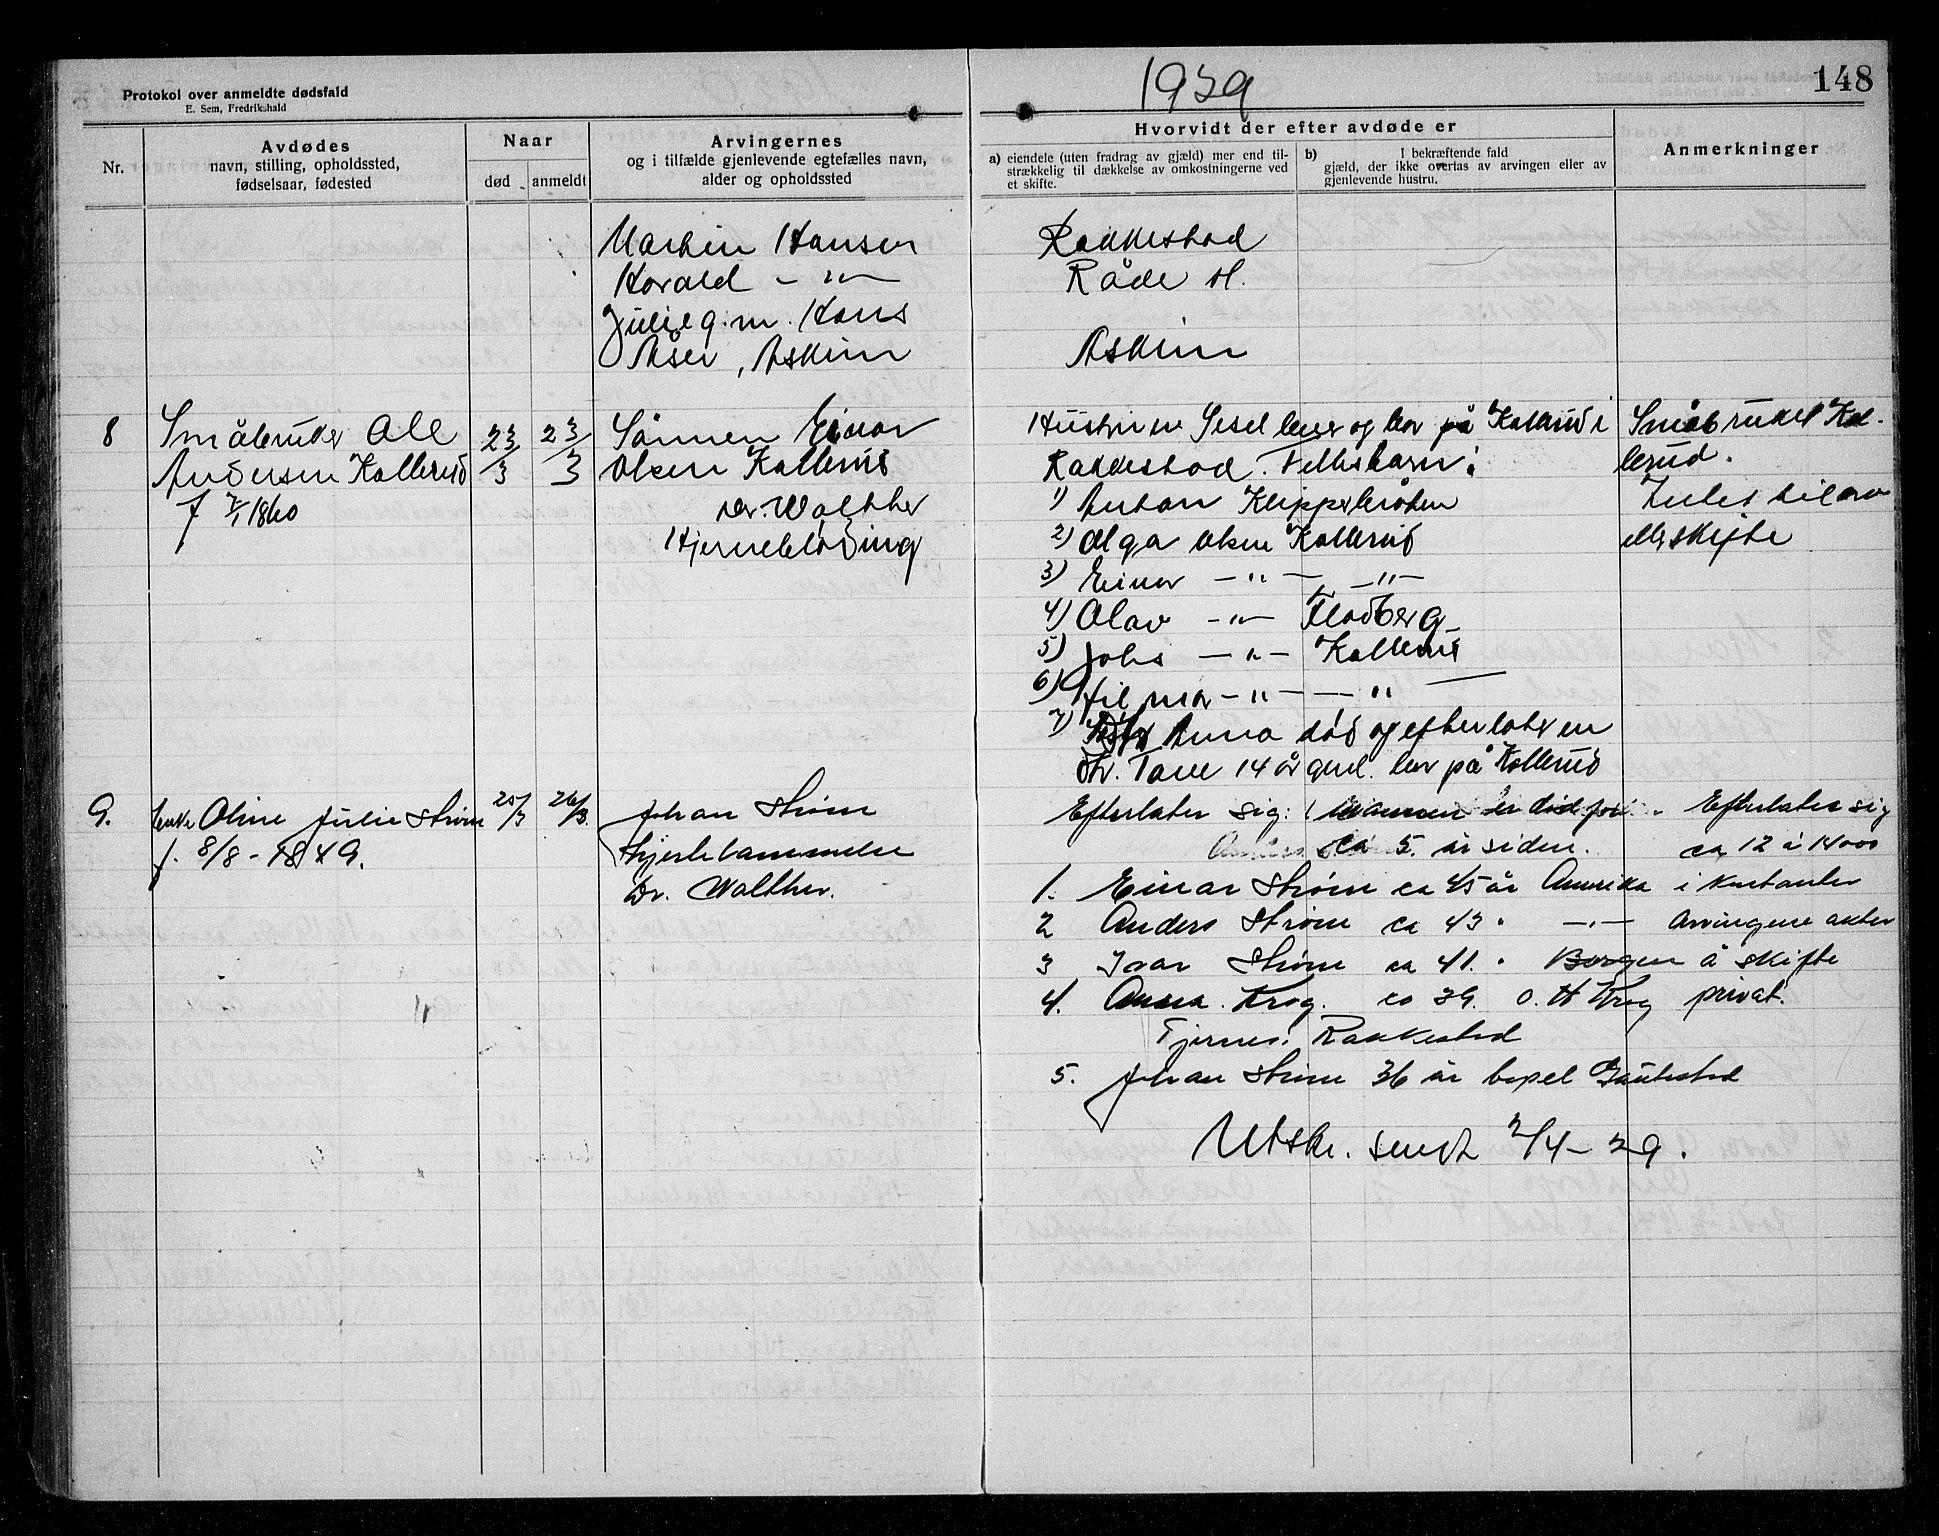 Protokol over anmeldte dødsfald
E. Sem, Fredrikshald
1939
148
Nr.
Avdødes
navn, stilling, opholdssted,
fødselsaar, fødested
Naar
død
anmeldt
Arvingernes
og i tilfælde gjenlevende egtefælles navn,
alder og opholdssted
Hvorvidt der efter avdøde er
a) eiendele (uten fradrag av gjæld) mer end til-
strækkelig til dækkelse av omkostningerne ved
et skifte.
b) I bekræftende fald
gjæld, der ikke overtas av arvingen eller av
gjenlevende hustru.
Anmerkninger
Martin Hansen Rakkestad
Harald - " - Råde st.
Julie g.m. Hans
Åser, Askim Askim
8 Småbruker Ole 23/3 23/3 Sønnen Einar Hustruen lever og bor på i Småbruket Kol-
Andersen Kollerud Olsen Kollerud Rakkestad. Fellesbarn: lerud.
f 1860 Dr. Walther 1) Anton
Hjerneblødning 2) Olga Olsen Kollerud skifte
3) Einar - " - - " -
4) Olav - " - Flodberg
5) Johs - " - Kollerud
6) Hilmar - " - - "
7) Anna død og efterlater en
dtr. 14 år gml. bor på Kollerud
9. Enke Oline Julie Strøm 25/3 26/3. Johan Strøm Efterlater sig: mannen er død for Efterlater sig
f. 8/8 - 1849. Hjertelammelse ca 5. år siden. ca 12 à 14000
Dr. Walther. 1. Einar Strøm ca 45 år Amerika i kontanter
2 Anders Strøm ca 43 " - " - Arvingene akter
3 Ivar Strøm ca 41. " Bergen å skifte
4. Anna Krog. ca 39. O. H Krog privat.
Tjernes. Rakkestad
5. Johan Strøm 36 år Gautestad
Utskr. sendt 2/4 - 29.